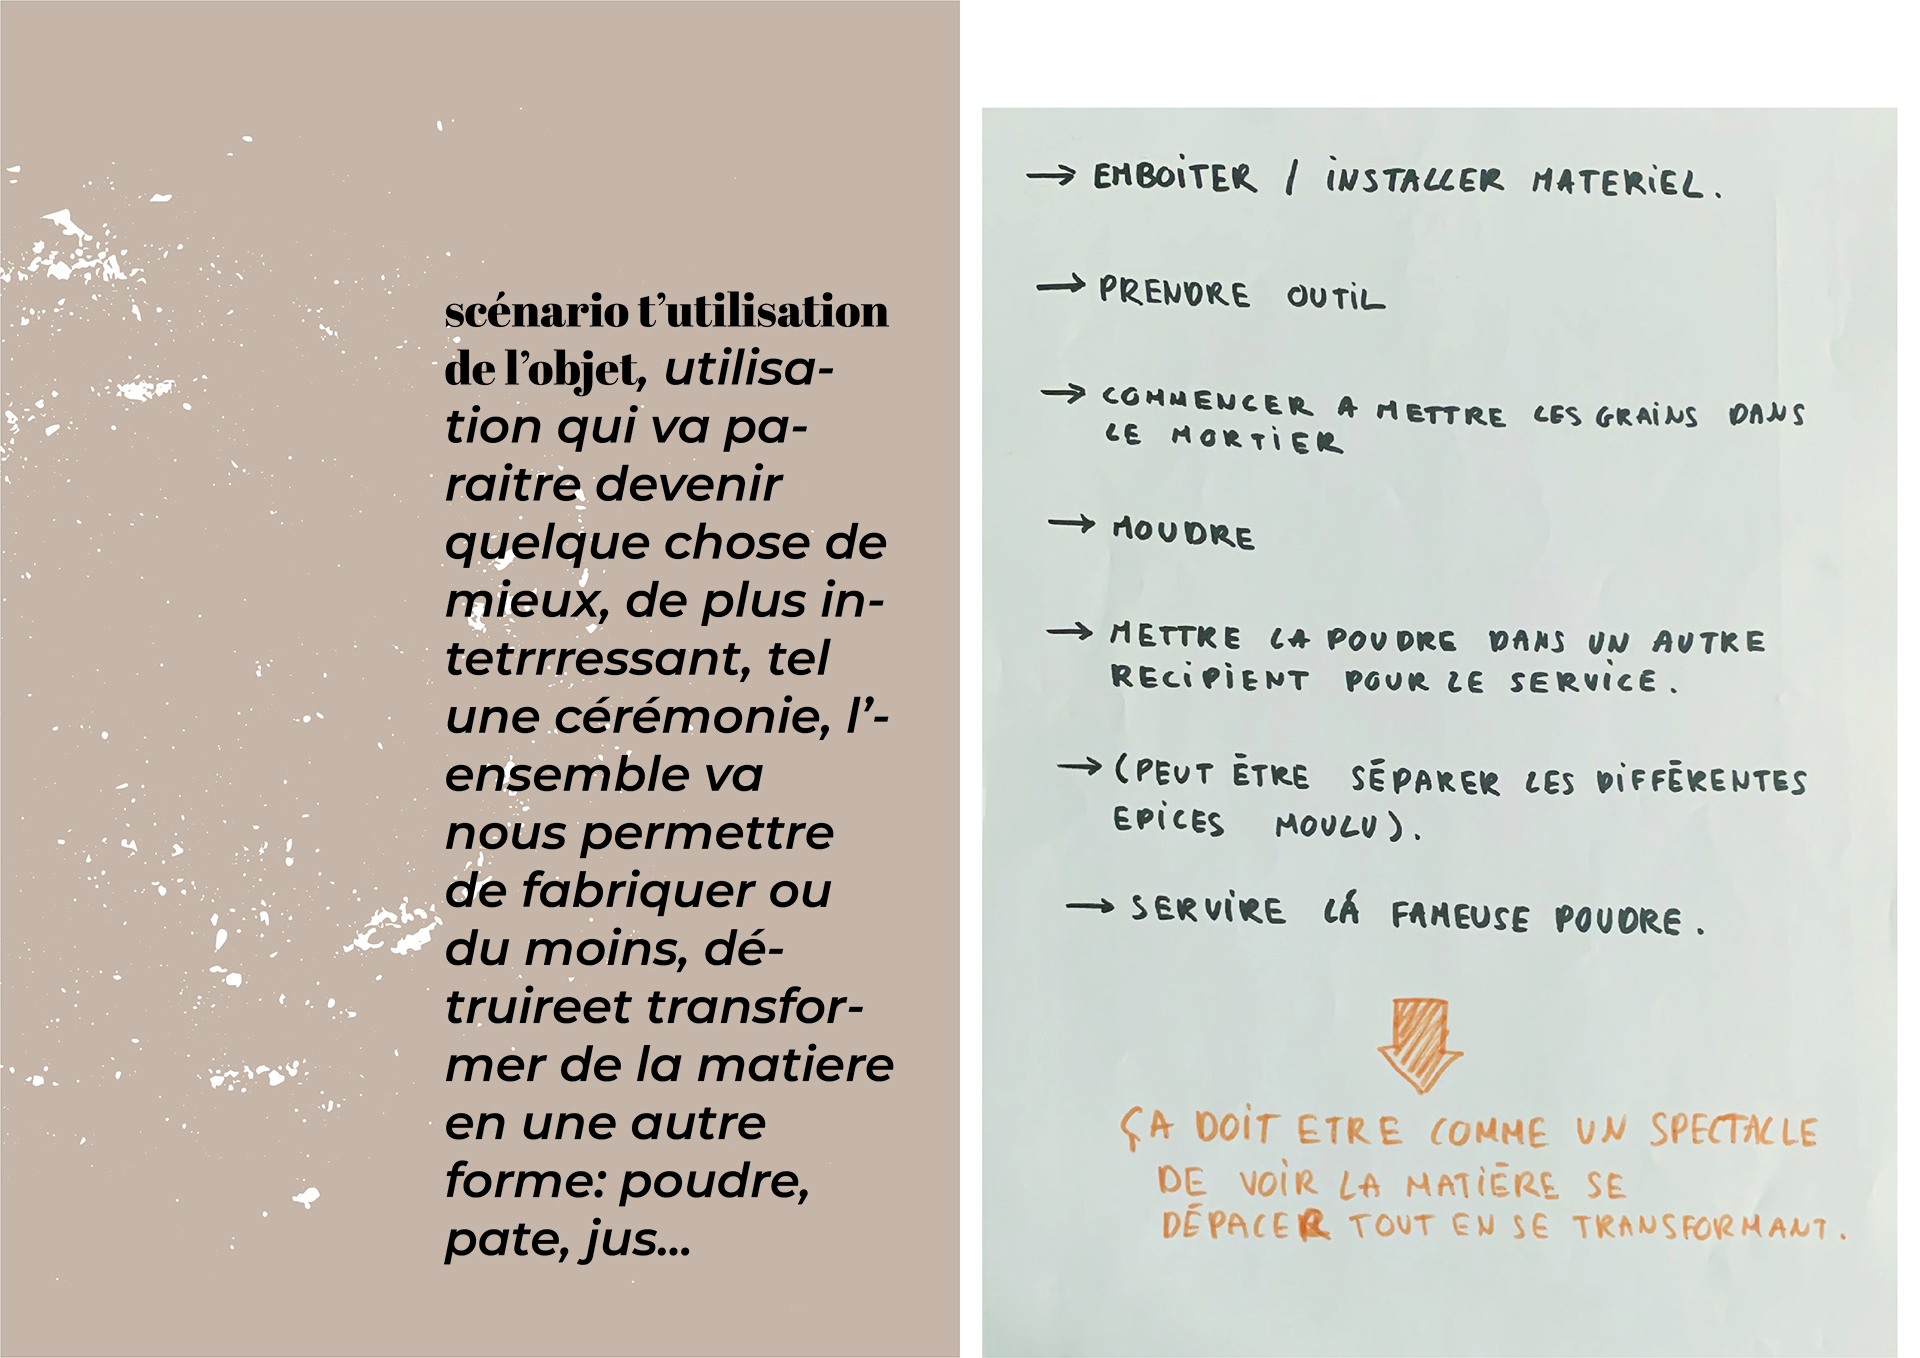 scénario t’utilisation
de l’objet, utilisa-
tion qui va pa-
raitre devenir
quelque chose de
mieux, de plus in-
tetrrressant, tel
une cérémonie, l’-
ensemble va
nous permettre
de fabriquer ou
du moins, dé-
truireet transfor-
mer de la matiere
en une autre
forme: poudre,
pate, jus...
→ EMBOiTER / iNSTALLER MATERiEL.
→ PRENDRE OUTiL
→ COMMENCER A METTRE LES GRAiNS DANS
LE MORTiER
→ MOUDRE
→ METTRE LA POUDRE DANS UN AUTRE
RECiPiENT POUR LE SERViCE.
→ (PEUT ÊTRE SÉPARER LES DiFFÉRENTES
EPiCES MOULU).
→ SERViRE LÁ FAMEUSE POUDRE.
ÇA DOiT ETRE COMME UN SPECTACLE
DE VOiR LA MATiÈRE SE
DÉPACER TOUT EN SE TRANSFORMANT.